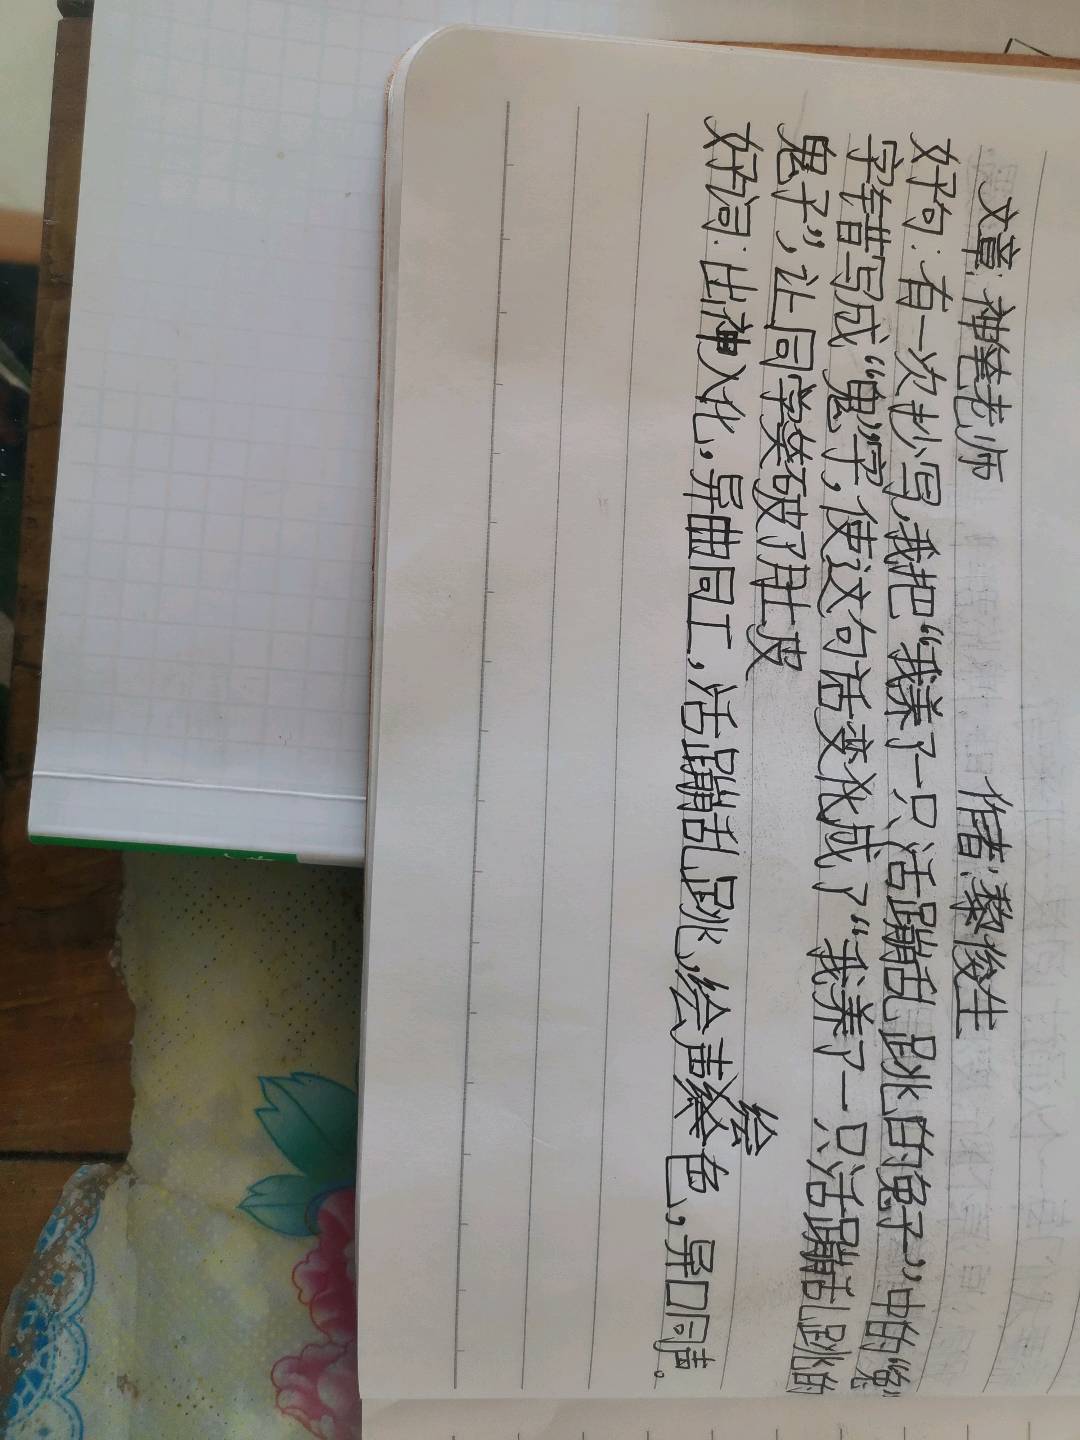 文章:神笔老师 作者:黎俊生
好句:有一次抄写,我把“我养了一只活蹦乱跳的兔子”中的“兔”
字错写成“鬼”字,使这句话变成了“我养了一只活蹦乱跳的
鬼子”,让同学笑破了肚皮
好词:出神入化,异曲同工,活蹦乱跳,绘声绘色,异口同声。